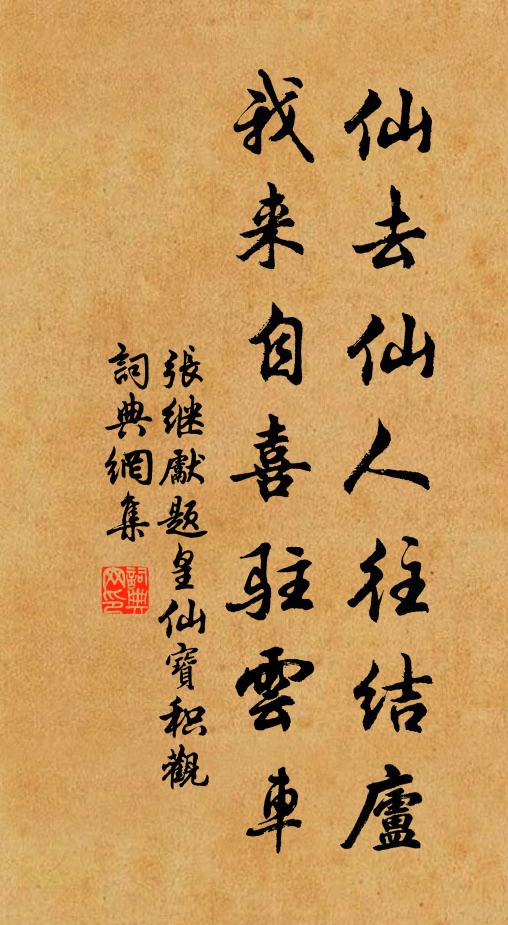 仙去仙人往结廬
我来自喜駐雲車
張继獻题皇仙寶积觀
詞典網集
詞典網印